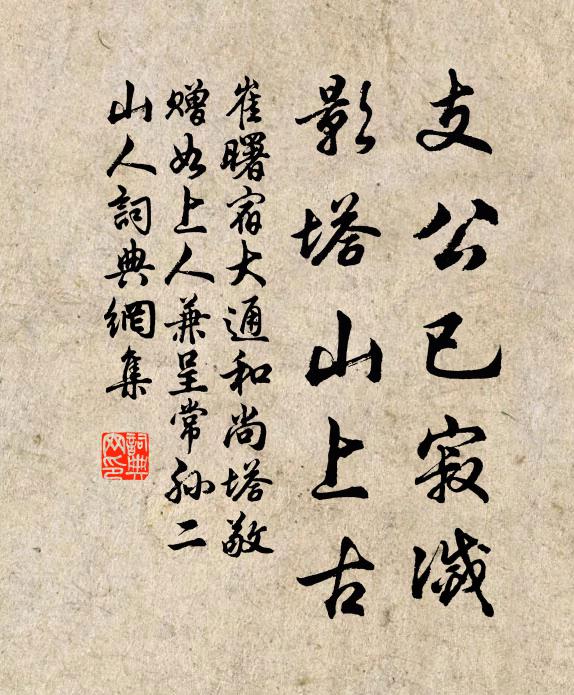 支公已寂滅
影塔山上古
崔曙宿大通和尚塔敬
贈如上人兼呈常孫二
山人詞典網集
詞典網印